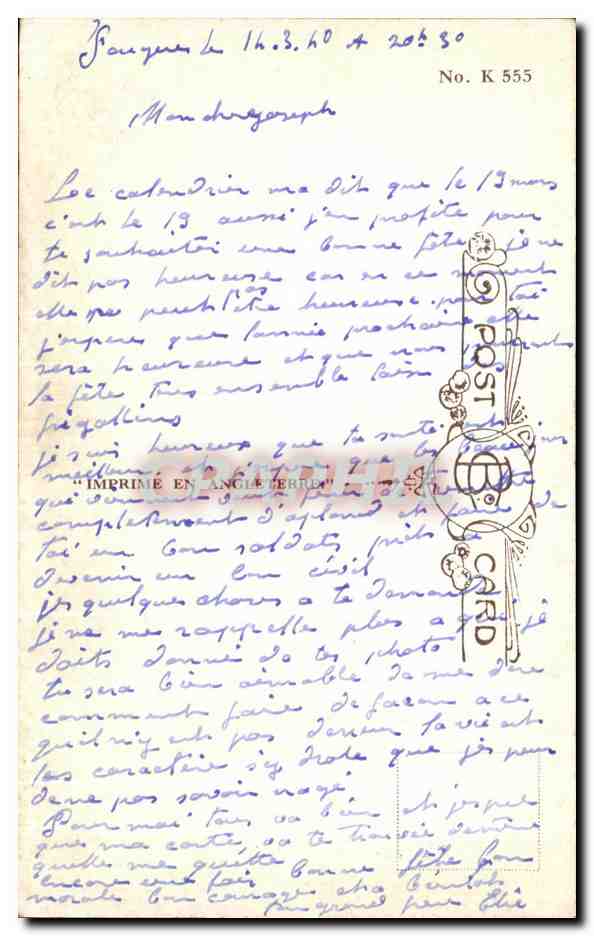 Fougeres le 14.3.40 A 20h30
No. K 555
Mon cher Joseph
Le calendrier ma dit que le 19 mars
c'est le 19 aussi j'en profite pour
te souhaiter une bonne fête je ne
dit pas heureuse car en ce moment
elle ne peut pas être heureuse pour toi
j'espere que l'année prochaine elle
sera heureuse et que nous
la fête tous ensemble
je suis heureux que ta santé
meilleur que les
"IMPRIMÉ EN ANGLETERRE"
qui
completement d'aplond et faire de
toi un bon soldats prêts a
devenir un bon civil
jes quelques choses a te demander
je ne me rappelle plus a qui je
doits donné de tes photo
tu sera bien aimable de me dire
comment faire de façon a ce
qu'il n'y est pas d'erreur la vie est
les caractère si drole que jes peur
de ne pas savoir
Pour moi tous va bien et j'espere
que ma carte va te trouvé de même
quelle me quitte
encore une fois bonne fête bon
morale bon courage et a bientôt
ton grand père
POST CARD
B